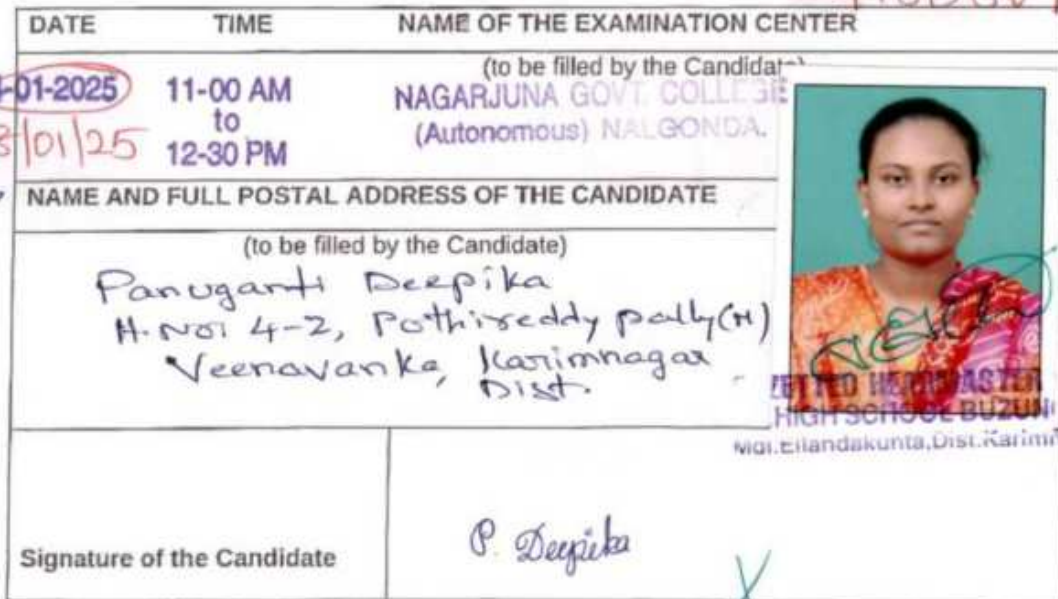 DATE TIME NAME OF THE EXAMINATION CENTER
(to be filled by the Candidate)
-01-2025 11-00 AM to 12-30 PM
/01/25
NAGARJUNA GOVT. COLLEGE
(Autonomous) NALGONDA.
NAME AND FULL POSTAL ADDRESS OF THE CANDIDATE
(to be filled by the Candidate)
Panuganti Deepika
H.No: 4-2, Pothireddy pally(M)
Veenavanka, Karimnagar
Dist.
ZETTED HEADMASTER
HIGH SCHOOL BUZUN
Mdl.Ellandakunta,Dist.Karim
Signature of the Candidate
P. Deepika